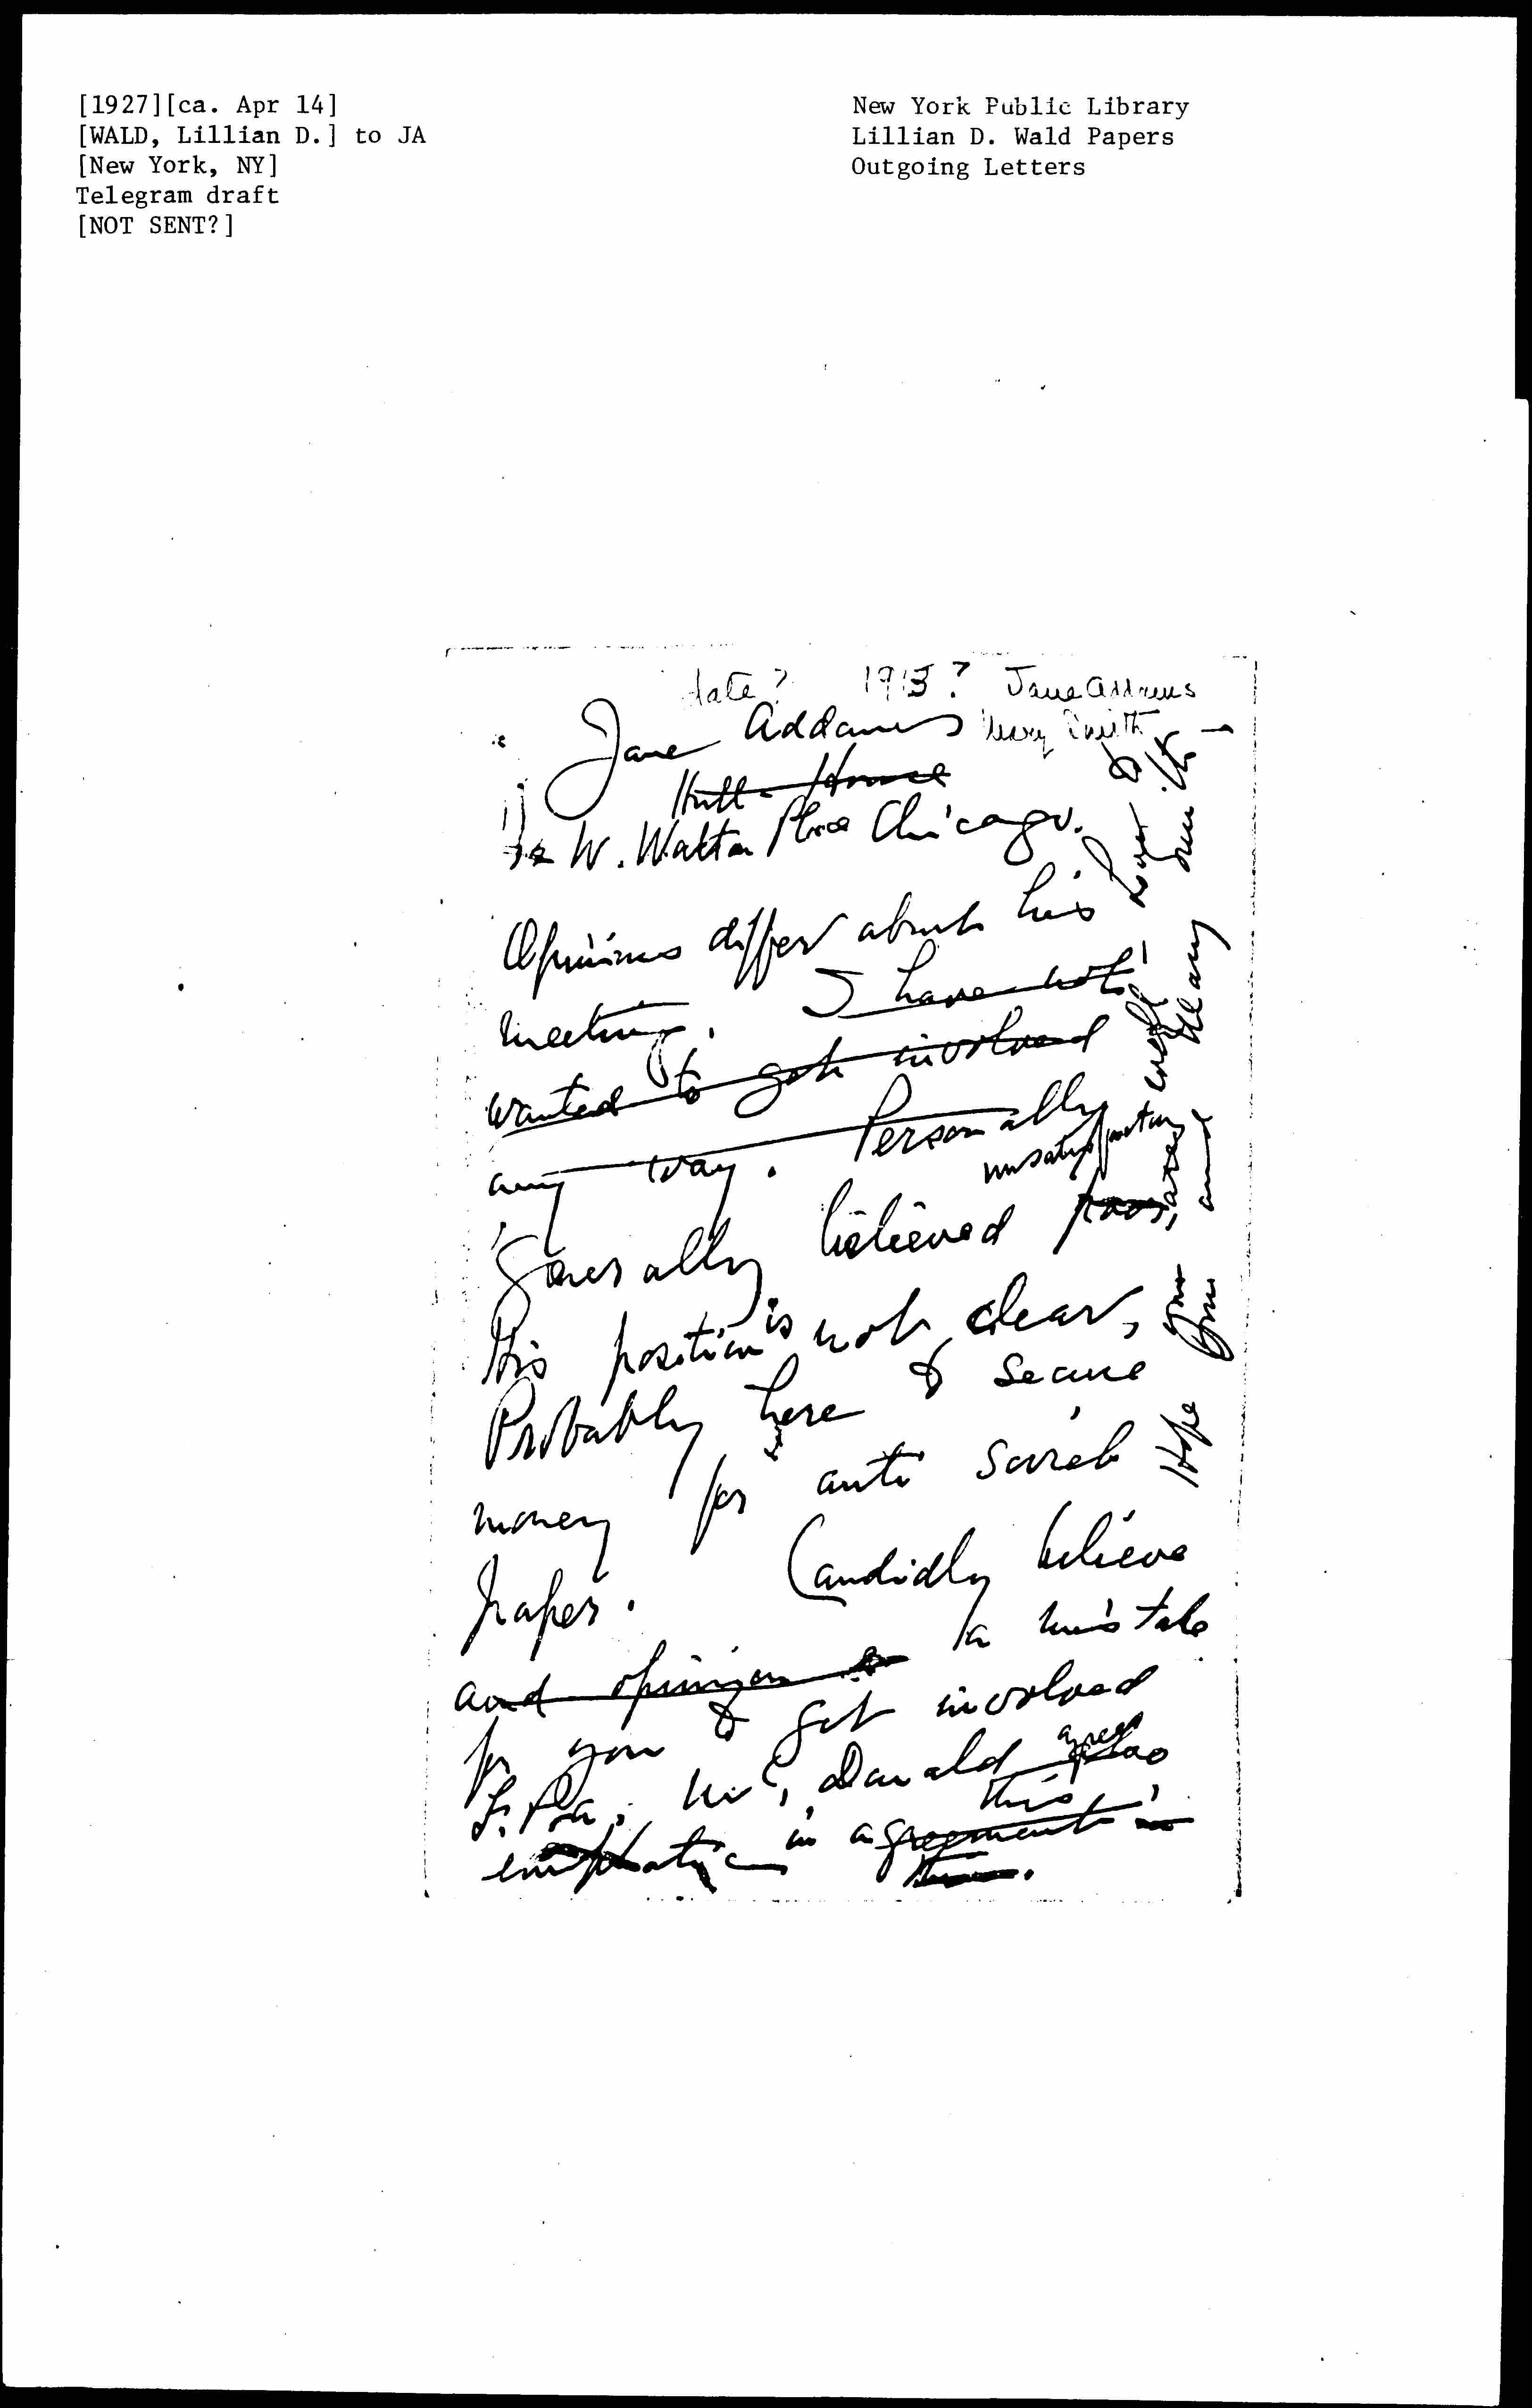 [1927][ca. Apr 14]
[WALD, Lillian D.] to JA
[New York, NY]
Telegram draft
[NOT SENT?]
New York Public Library
Lillian D. Wald Papers
Outgoing Letters
date? 1913? Jane Addams
Mary Smith
Jane Addams
Hull-House
W. Walton Place Chicago.
Opinions differ about his
meeting. I have not
wanted to get involved
any way. Personally
unsatisfactory
Generally believed poor,
His position is not clear,
Probably here to secure
money for anti Soviet
paper. Candidly believe
and opinion a mistake
for you to get involved
McDonald agrees
this
emphatic in agreement in
this.
Hope you are well
love to you and Mary Smith